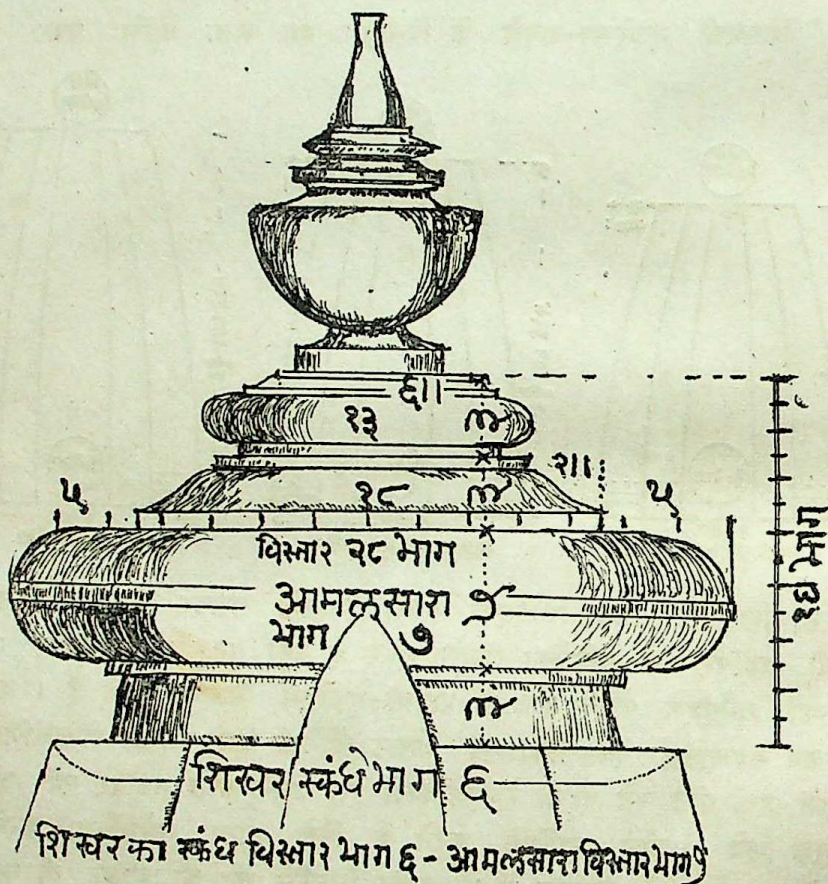 ६।।
१३
२।।
५ १८ ५
विस्तार २८ भाग
आमलसारा
भाग ७
भाग
शिखर स्कंधे भाग ६
शिखर का स्कंध विस्तार भाग ६ - आमलसारा विस्तार भाग